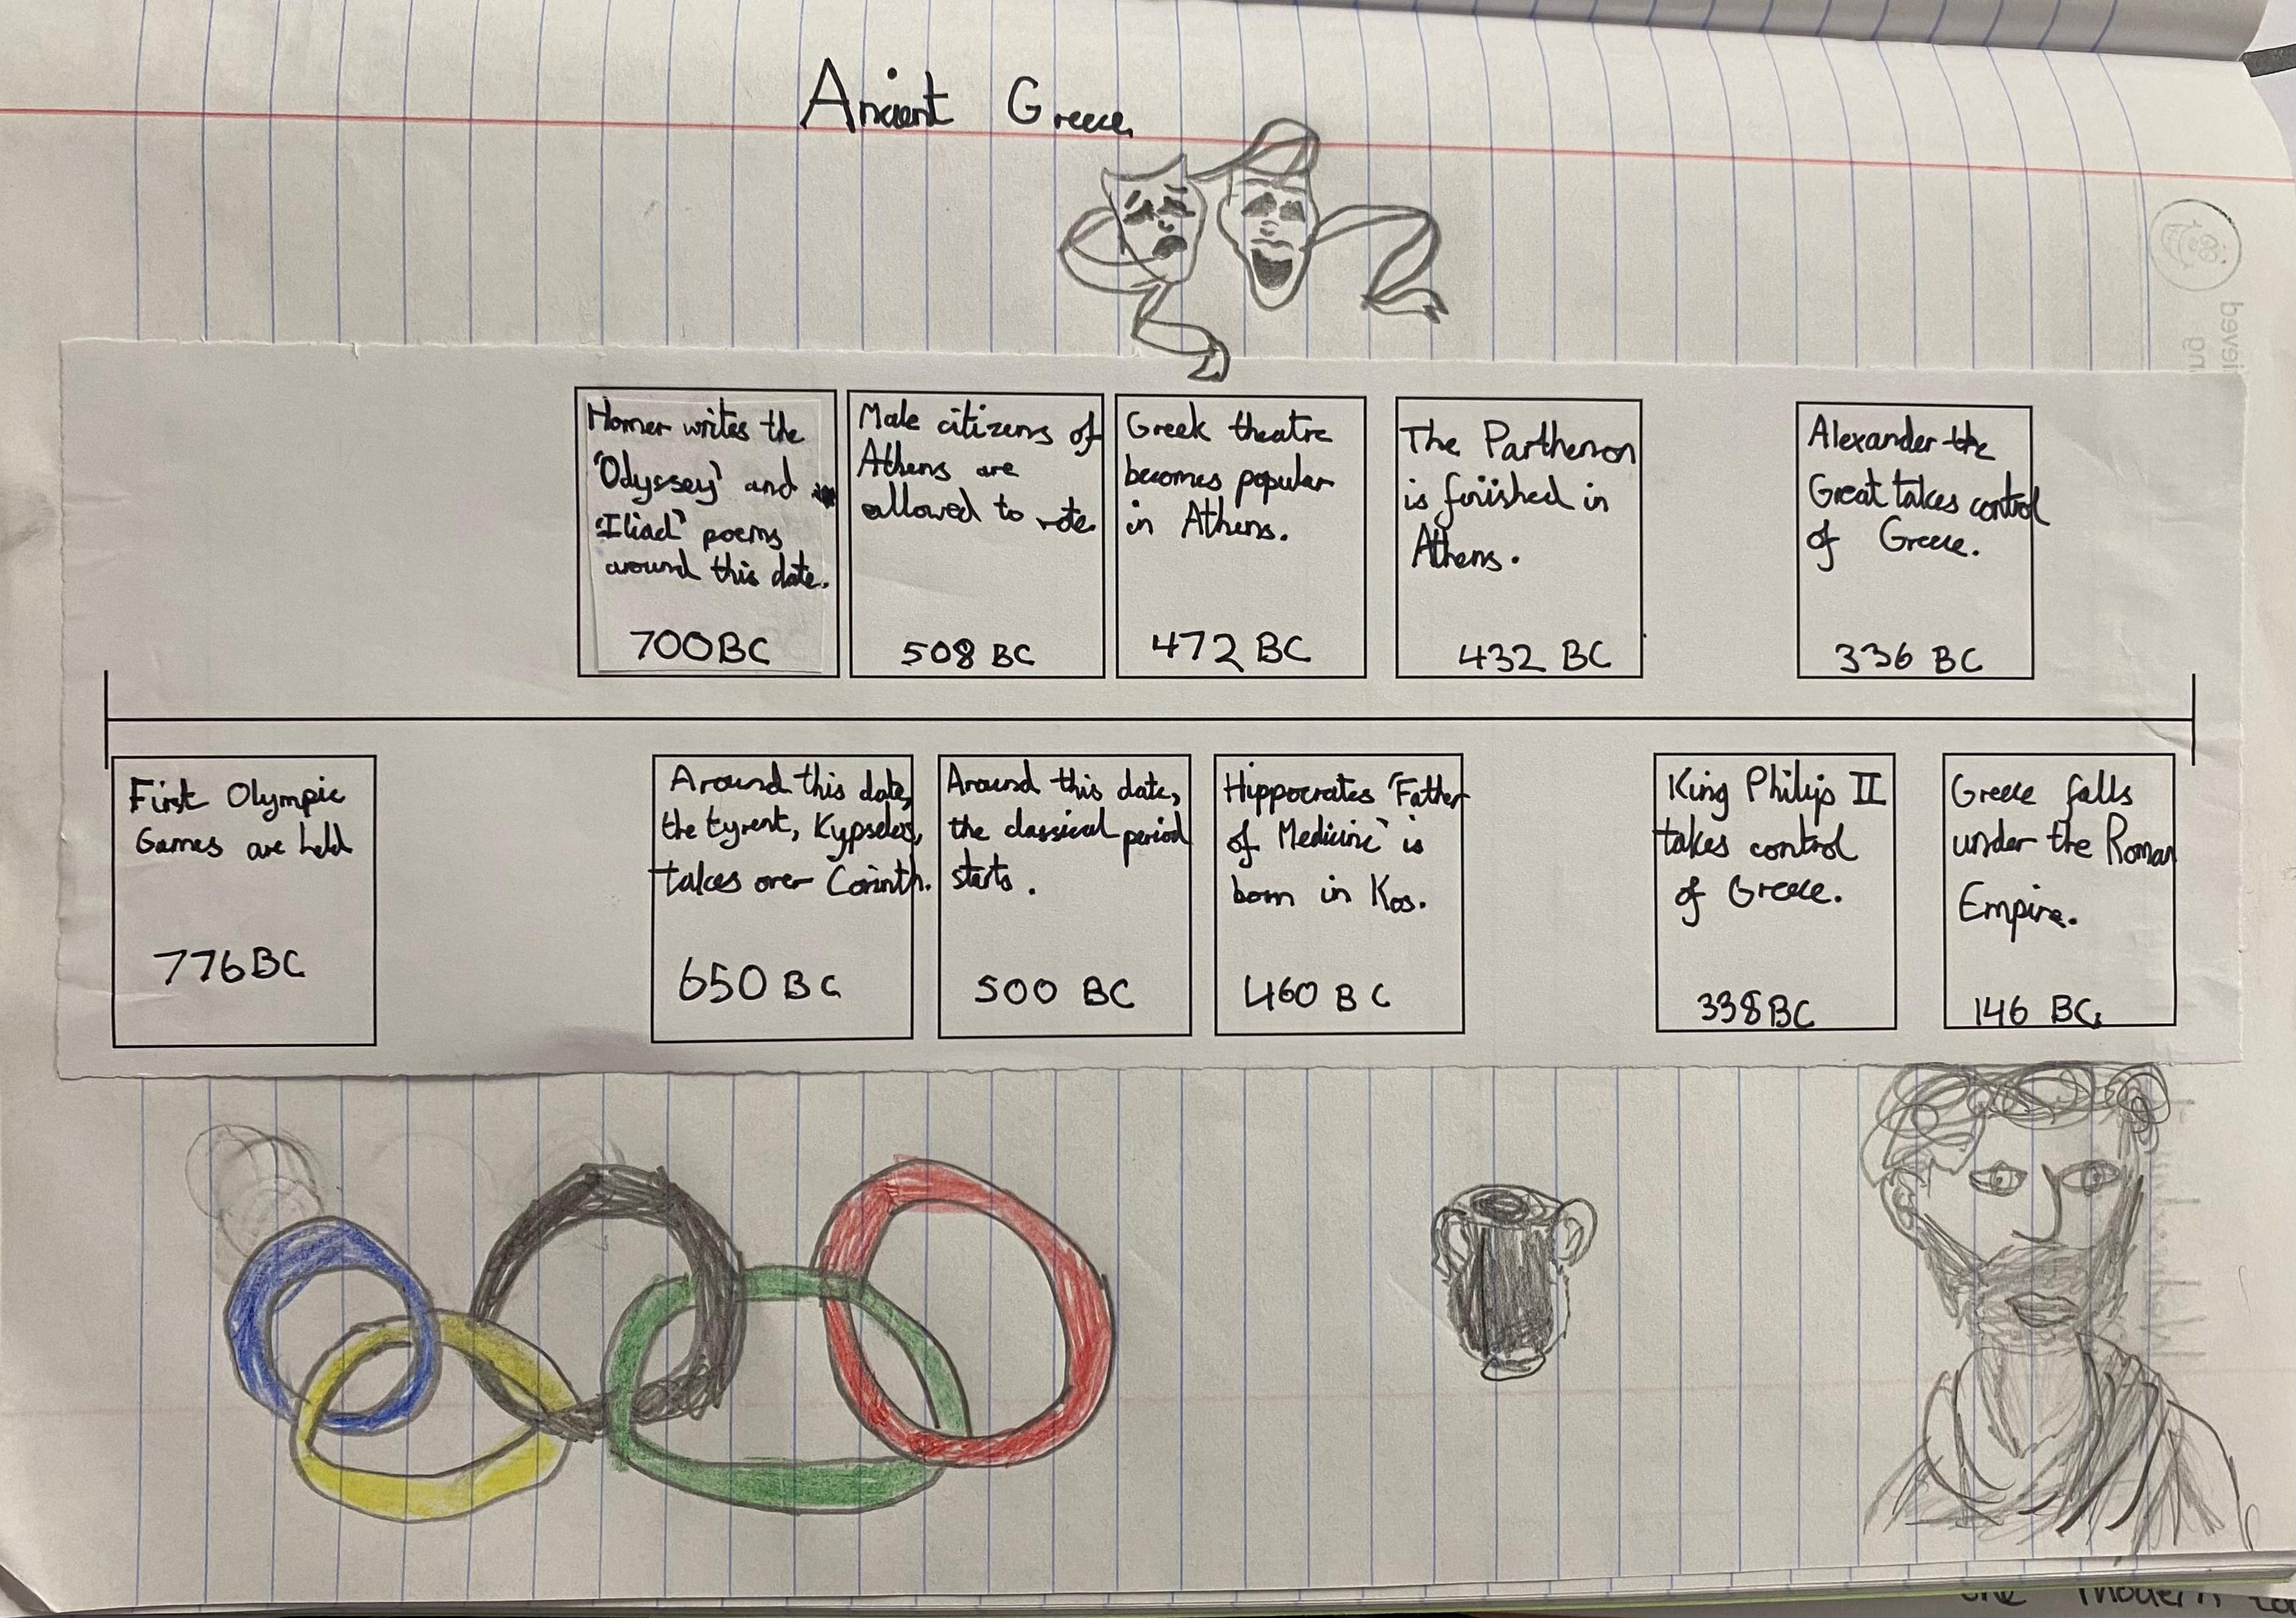 Ancient Greece
Homer writes the
'Odyssey' and
'Iliad' poems
around this date.
700BC
Male citizens of
Athens are
allowed to vote.
508 BC
Greek theatre
becomes popular
in Athens.
472 BC
The Parthenon
is finished in
Athens.
432 BC
Alexander the
Great takes control
of Greece.
336 BC
First Olympic
Games are held
776BC
Around this date,
the tyrent, Kypselos,
takes over Corinth.
650 BC
Around this date,
the classical period
starts.
500 BC
Hippocrates 'Father
of Medicine' is
born in Kos.
460 BC
King Philip II
takes control
of Greece.
338BC
Greece falls
under the Roman
Empire.
146 BC